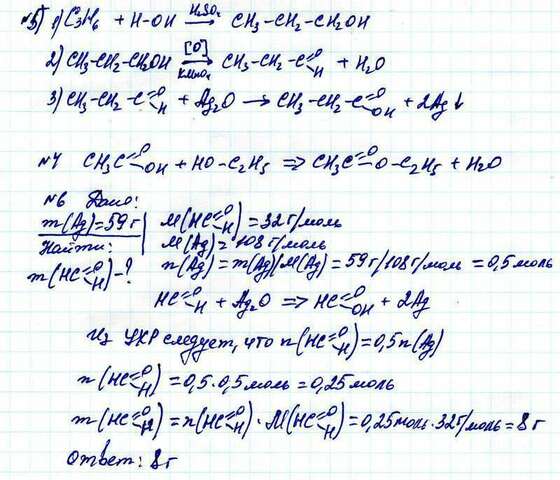 №5) 1) C3H6 + H-OH →(H2SO4) CH3-CH2-CH2OH
2) CH3-CH2-CH2OH →([O] KMnO4) CH3-CH2-C=O H + H2O
3) CH3-CH2-C=O H + Ag2O → CH3-CH2-C=O OH + 2Ag↓
№7 CH3C=O OH + HO-C2H5 ⇒ CH3C=O O-C2H5 + H2O
№6 Дано:
m(Ag)=59г M(HC=O H) = 32г/моль
Найти: M(Ag)=108г/моль
m(HC=O H)-? n(Ag) = m(Ag)/M(Ag) = 59г/108г/моль = 0,5моль
HC=O H + Ag2O ⇒ HC=O OH + 2Ag
Из УХР следует, что n(HC=O H)=0,5n(Ag)
n(HC=O H) = 0,5·0,5моль = 0,25моль
m(HC=O H) = n(HC=O H)·M(HC=O H) = 0,25моль·32г/моль = 8г
Ответ: 8г